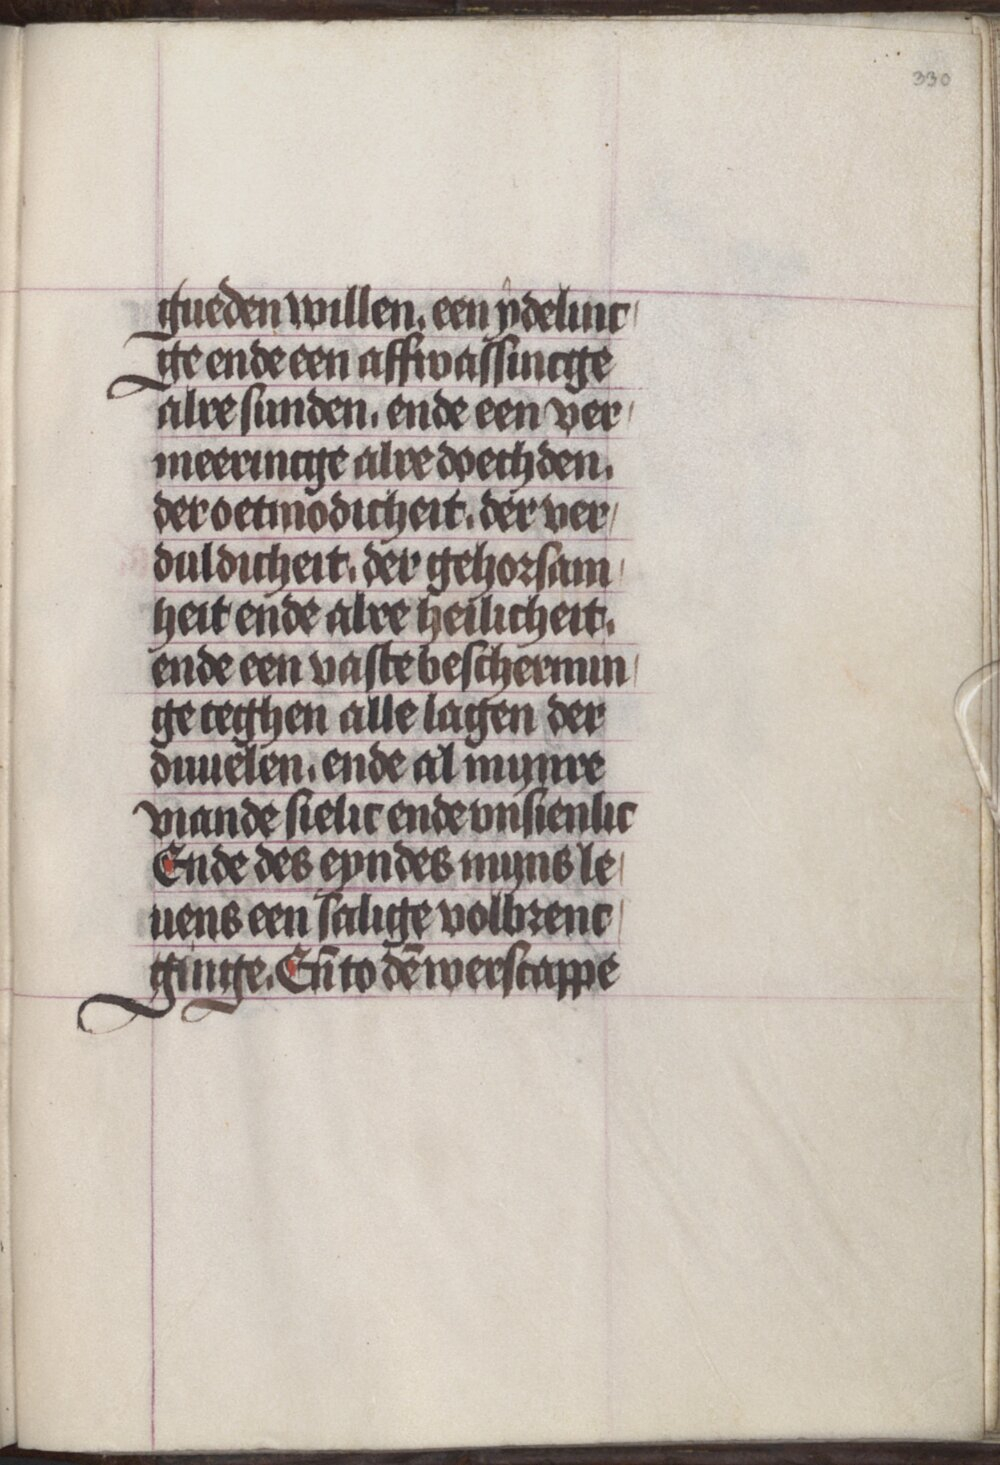 330
gueden willen. een ydelinc
ge ende een affwassincge
alre sunden. ende een ver
meerincge alre doechden.
der oetmodicheit. der ver
duldicheit. der gehorsam
heit ende alre heilicheit.
ende een vaste beschermin
ge teghen alle lagen der
duuelen. ende al mynre
viande sielic ende vnsienlic
Ende des eyndes myns le
uens een salige volbrenc
ginge. Eñ to dē werscappe